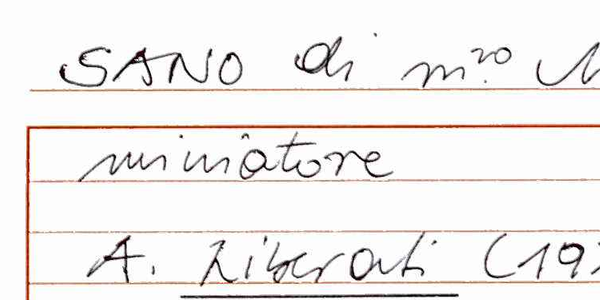 SANO di m.ro
miniatore
A. Liberati (19